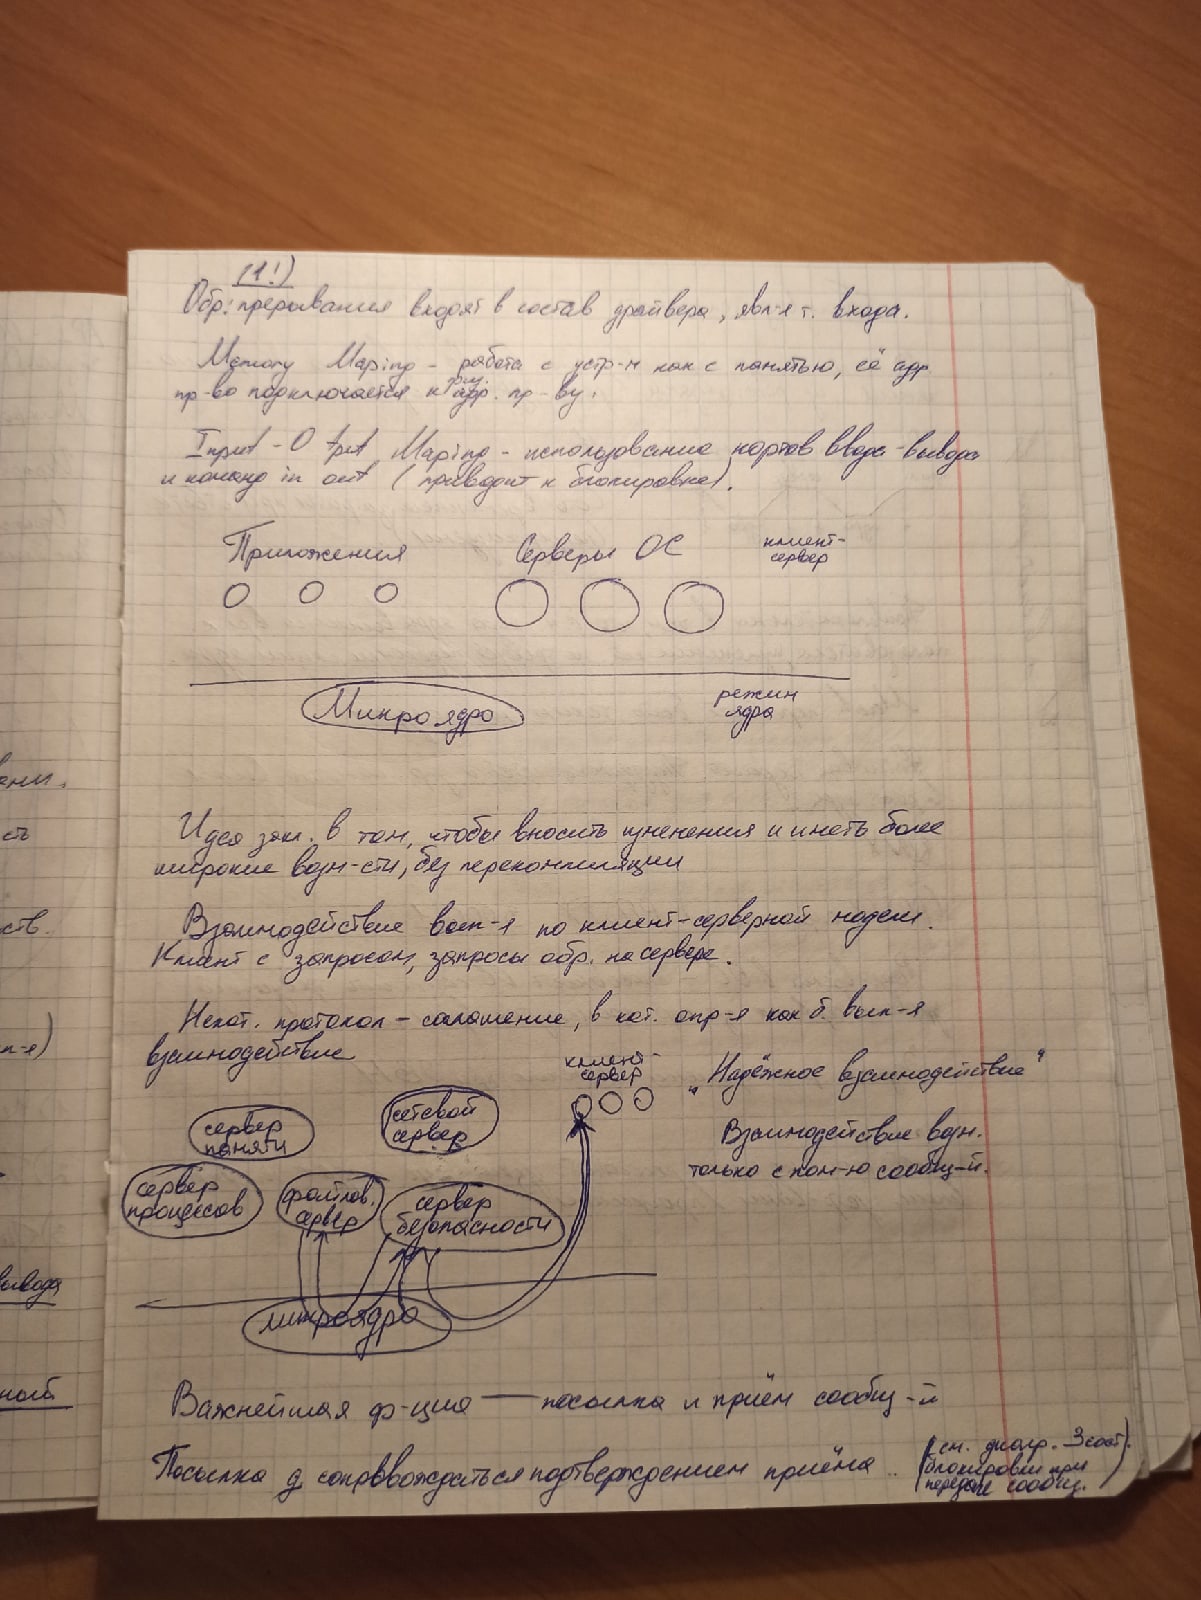 (1!)
Обр. прерывания входят в состав драйвера, явл-я т. входа.
Memory Maping - работа с устр-м как с памятью, её адр.
пр-во подключается к физ. адр. пр-ву.
Input-Output Maping - использование портов ввода-вывода
и команд in out (приводит к блокировке).
Приложения Серверы ОС клиент-
сервер
Микроядро режим
ядра
Идея закл. в том, чтобы вносить изменения и иметь более
широкие возм-сти, без перекомпиляции
Взаимодействие вып-я по клиент-серверной модели.
Клиент с запросом, запросы обр. на сервере.
Некот. протокол - соглашение, в кот. опр-я как б. вып-я
взаимодействие
клиент-
сервер
„Надёжное взаимодействие"
Взаимодействие возм.
только с пом-ю сообщ-й.
сервер
памяти
сетевой
сервер
сервер
процессов
файлов.
сервер
сервер
безопасности
микроядро
Важнейшая ф-ция — посылка и приём сообщ-й
Посылка д. сопровождаться подтверждением приёма
(см. диагр. 3 сост.
блокировки при
передаче сообщ.)
вени.
сть
ств.
п-я)
вывода
ной